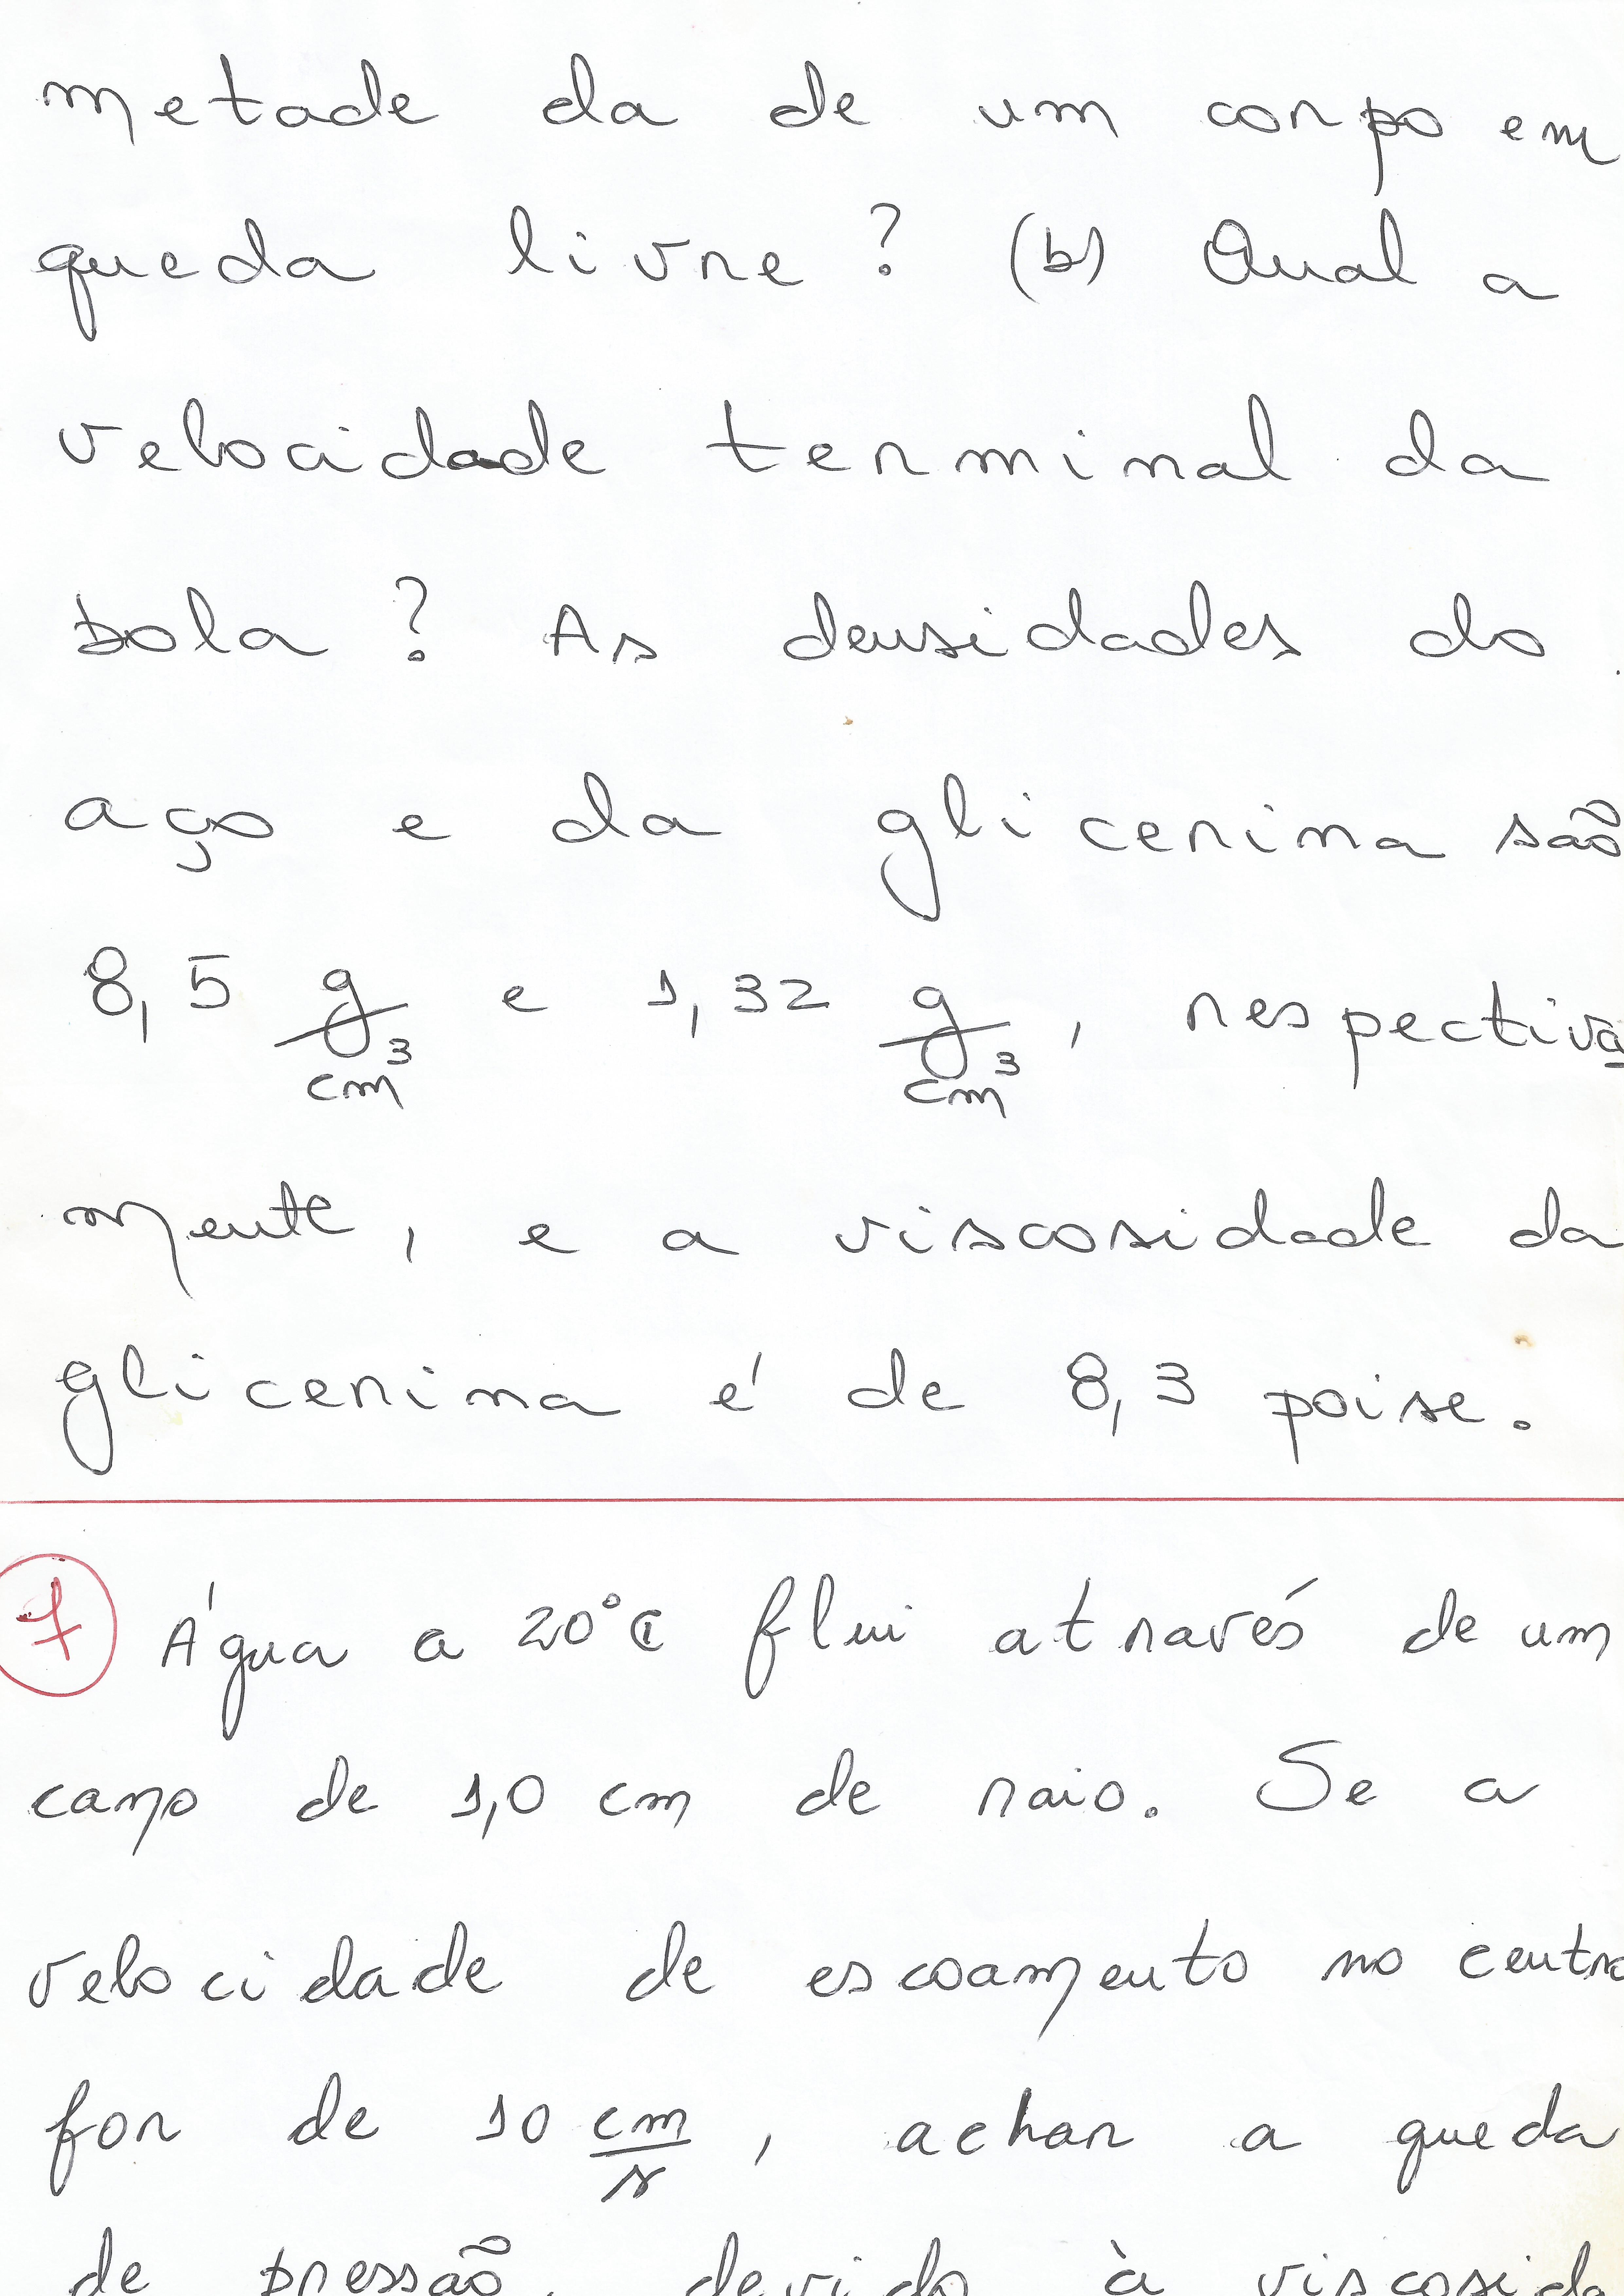 metade da de um corpo em
queda livre? (b) Qual a
velocidade terminal da
bola? As densidades do
aço e da glicerina são
8,5 g/cm³ e 1,32 g/cm³, respectiva
mente, e a viscosidade da
glicerina é de 8,3 poise.
7 Água a 20°C flui através de um
cano de 1,0 cm de raio. Se a
velocidade de escoamento no centro
for de 10 cm/s, achar a queda
de pressão, devido à viscosida